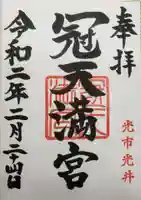 奉拝
光市光井
冠天満宮
令和二年二月二十山日